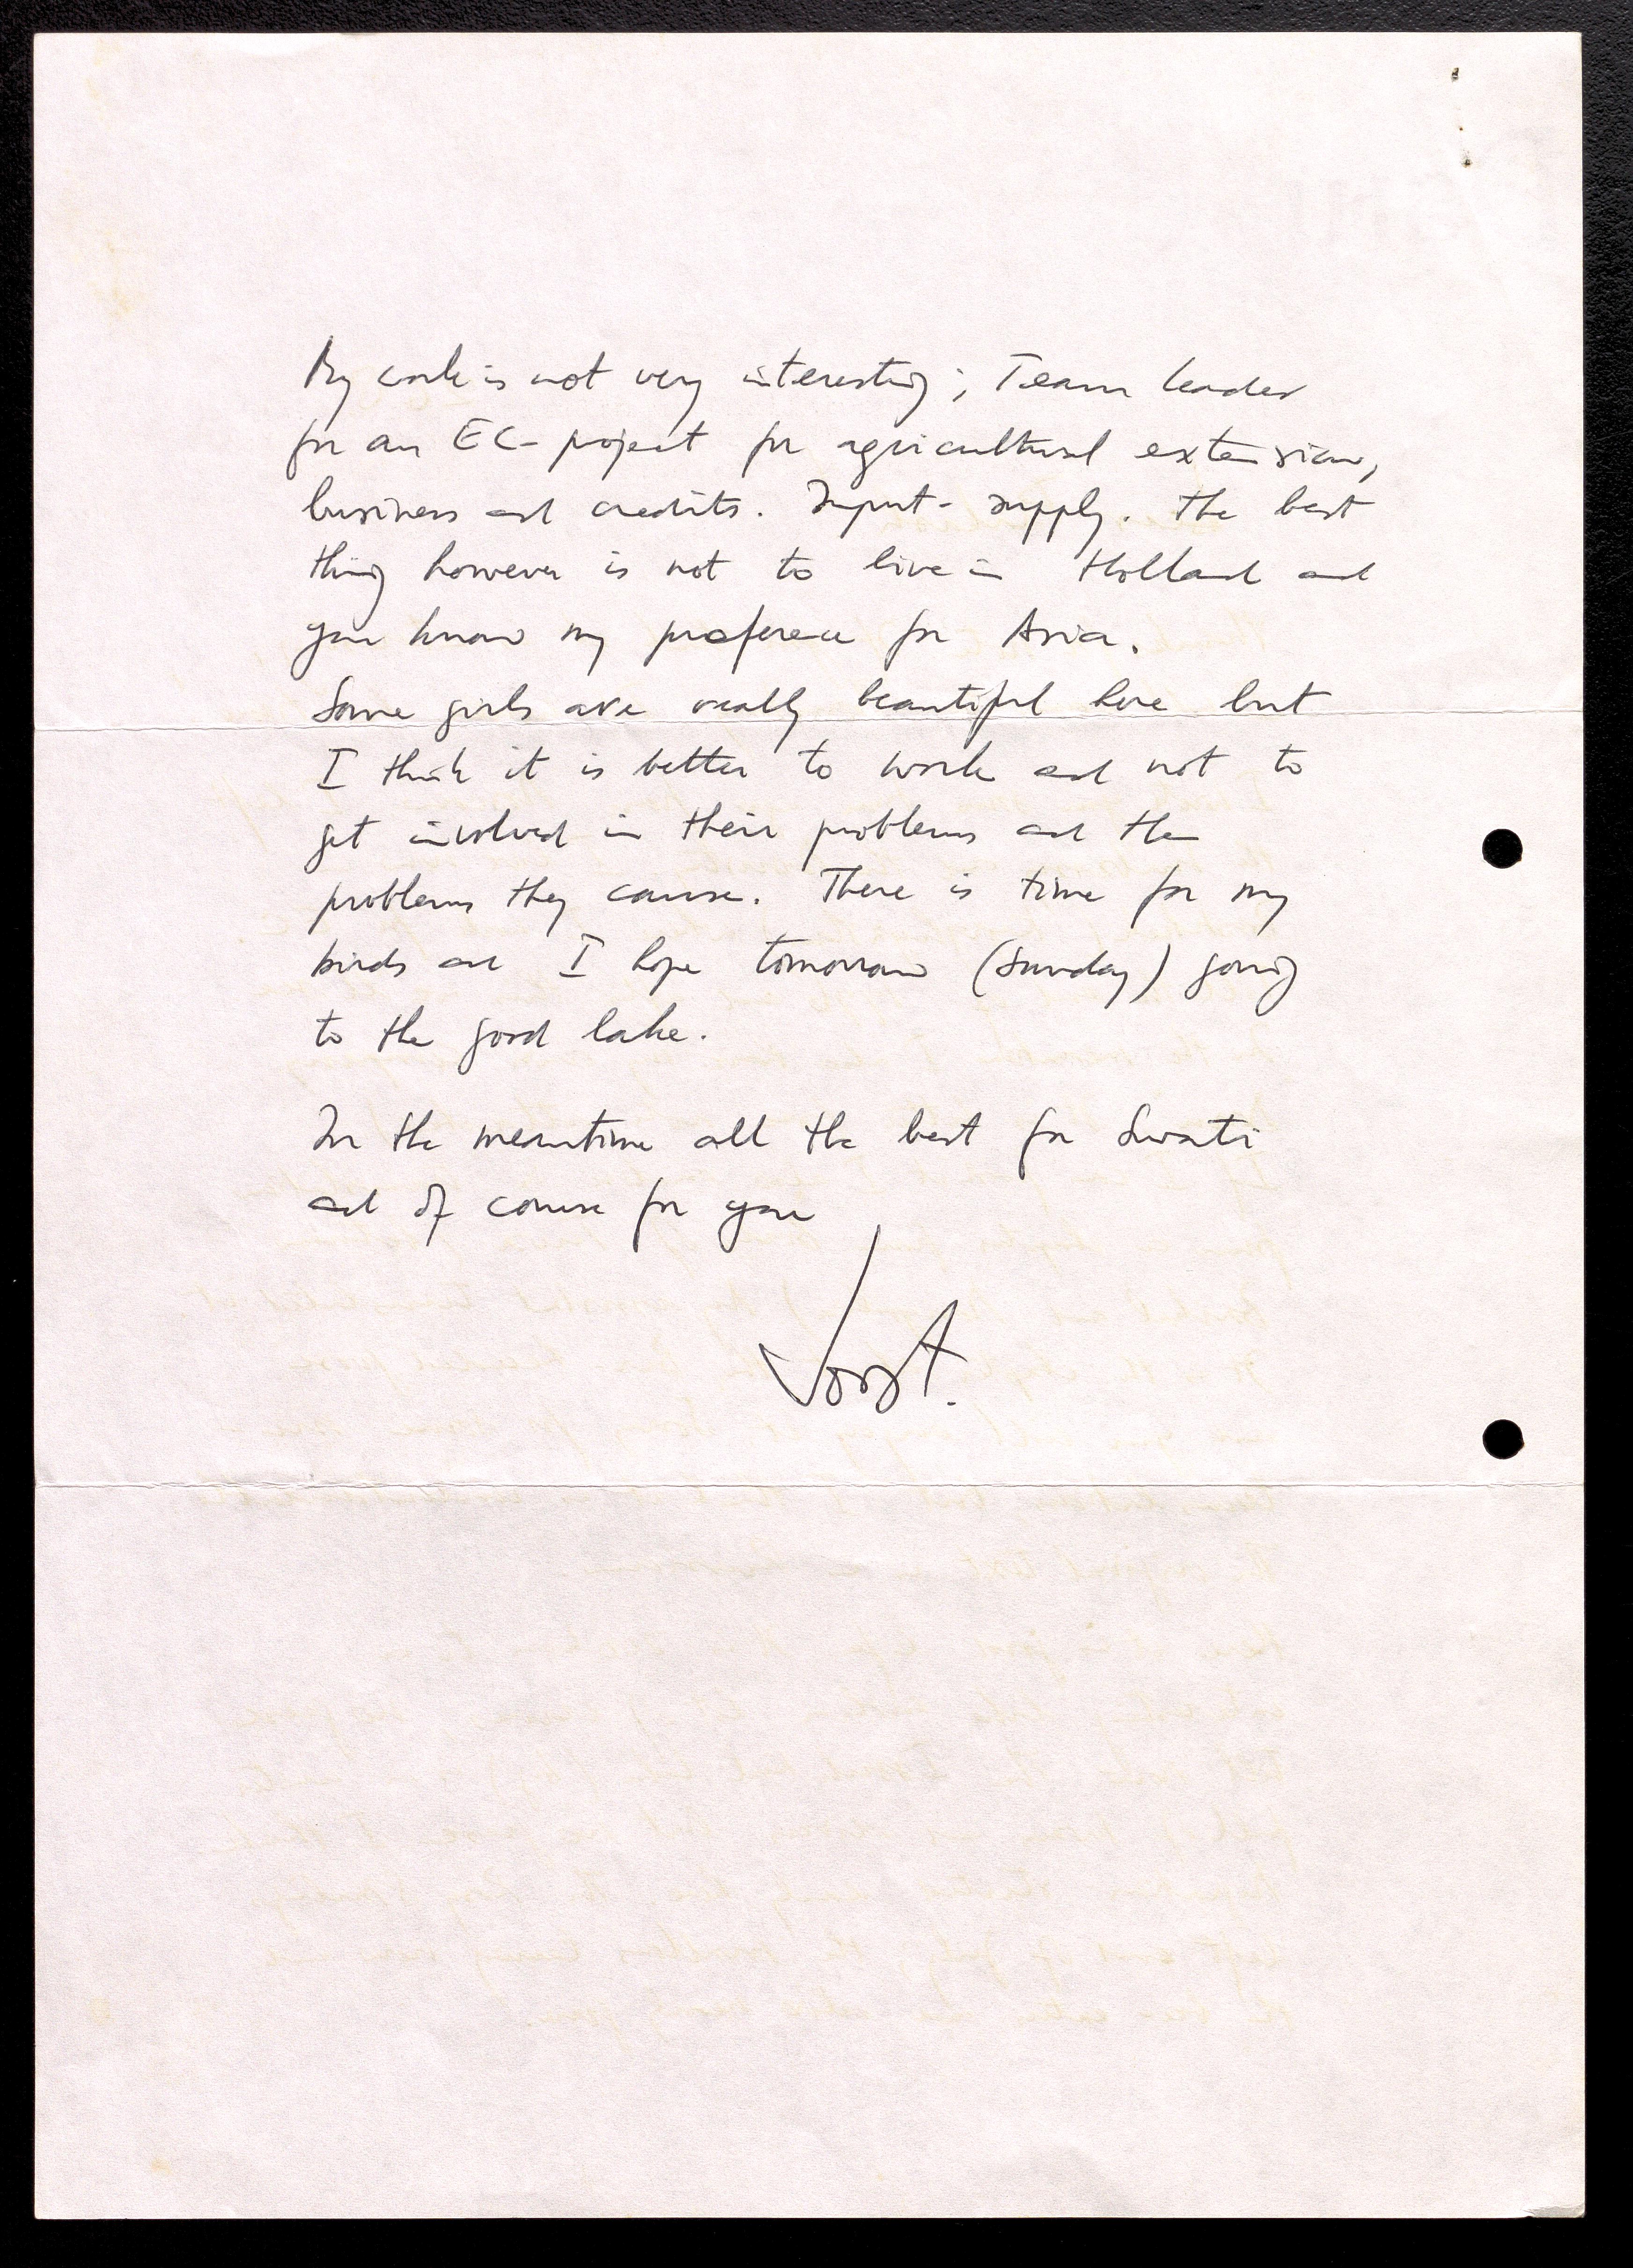 My work is not very interesting; Team leader
for an EC-project for agricultural extension,
business and credits. Input-supply. The best
thing however is not to live in Holland and
you know my preference for Asia.
Some girls are really beautiful here but
I think it is better to work and not to
get involved in their problems and the
problems they cause. There is time for my
birds and I hope tomorrow (Sunday) going
to the good lake.
In the meantime all the best for Swati
and of course for you
Joost.